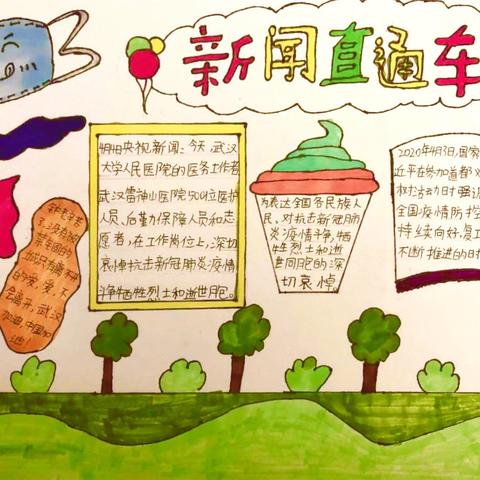 新闻直通车
央视新闻：今天，武汉
大学人民医院的医务工作者
武汉雷神山医院500位医护
人员、后勤保障人员和志
愿者，在工作岗位上，深切
哀悼抗击新冠肺炎疫情
斗争牺牲烈士和逝世同胞。
为表达全国各民族人
民、对抗击新冠肺
炎疫情斗争，牺
牲烈士和逝
世同胞的深
切哀悼。
2020年4月3日，国家
近平在参加首都义
权扶动时强调
全国疫情防
持续向好，复工
不断推进的时
的爱，爱，不
会离开，武汉
加油，中国加
油！